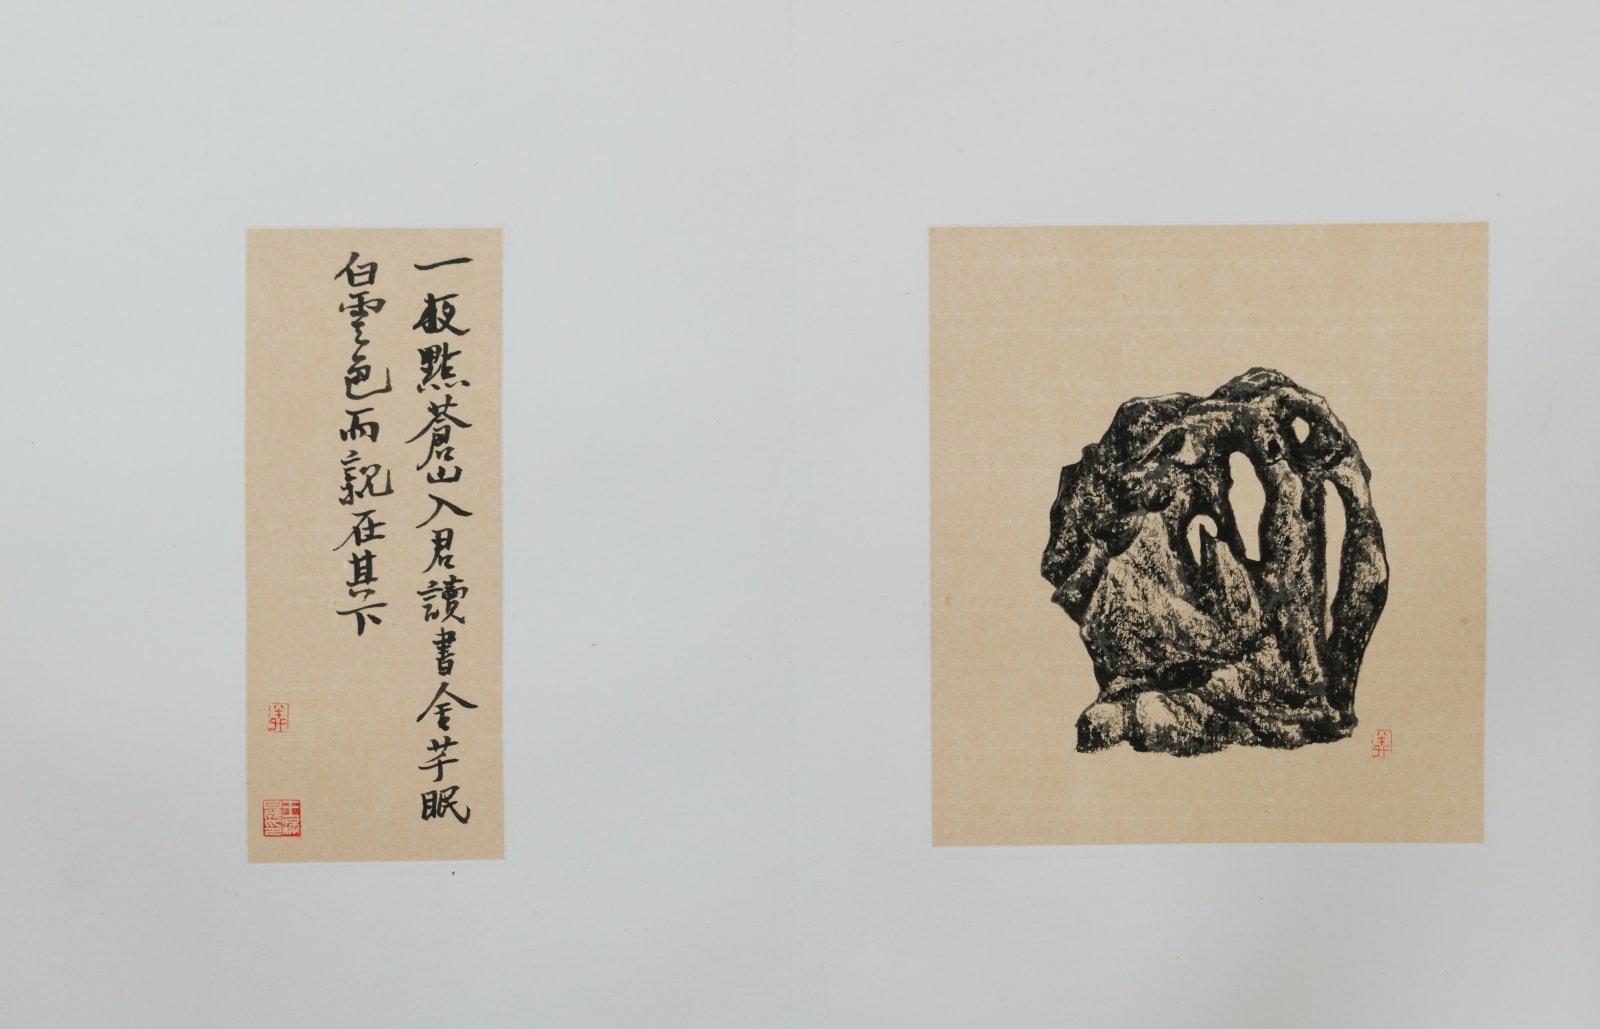 一段點蒼山入君讀書舍芊眠
白雲色而親在其下